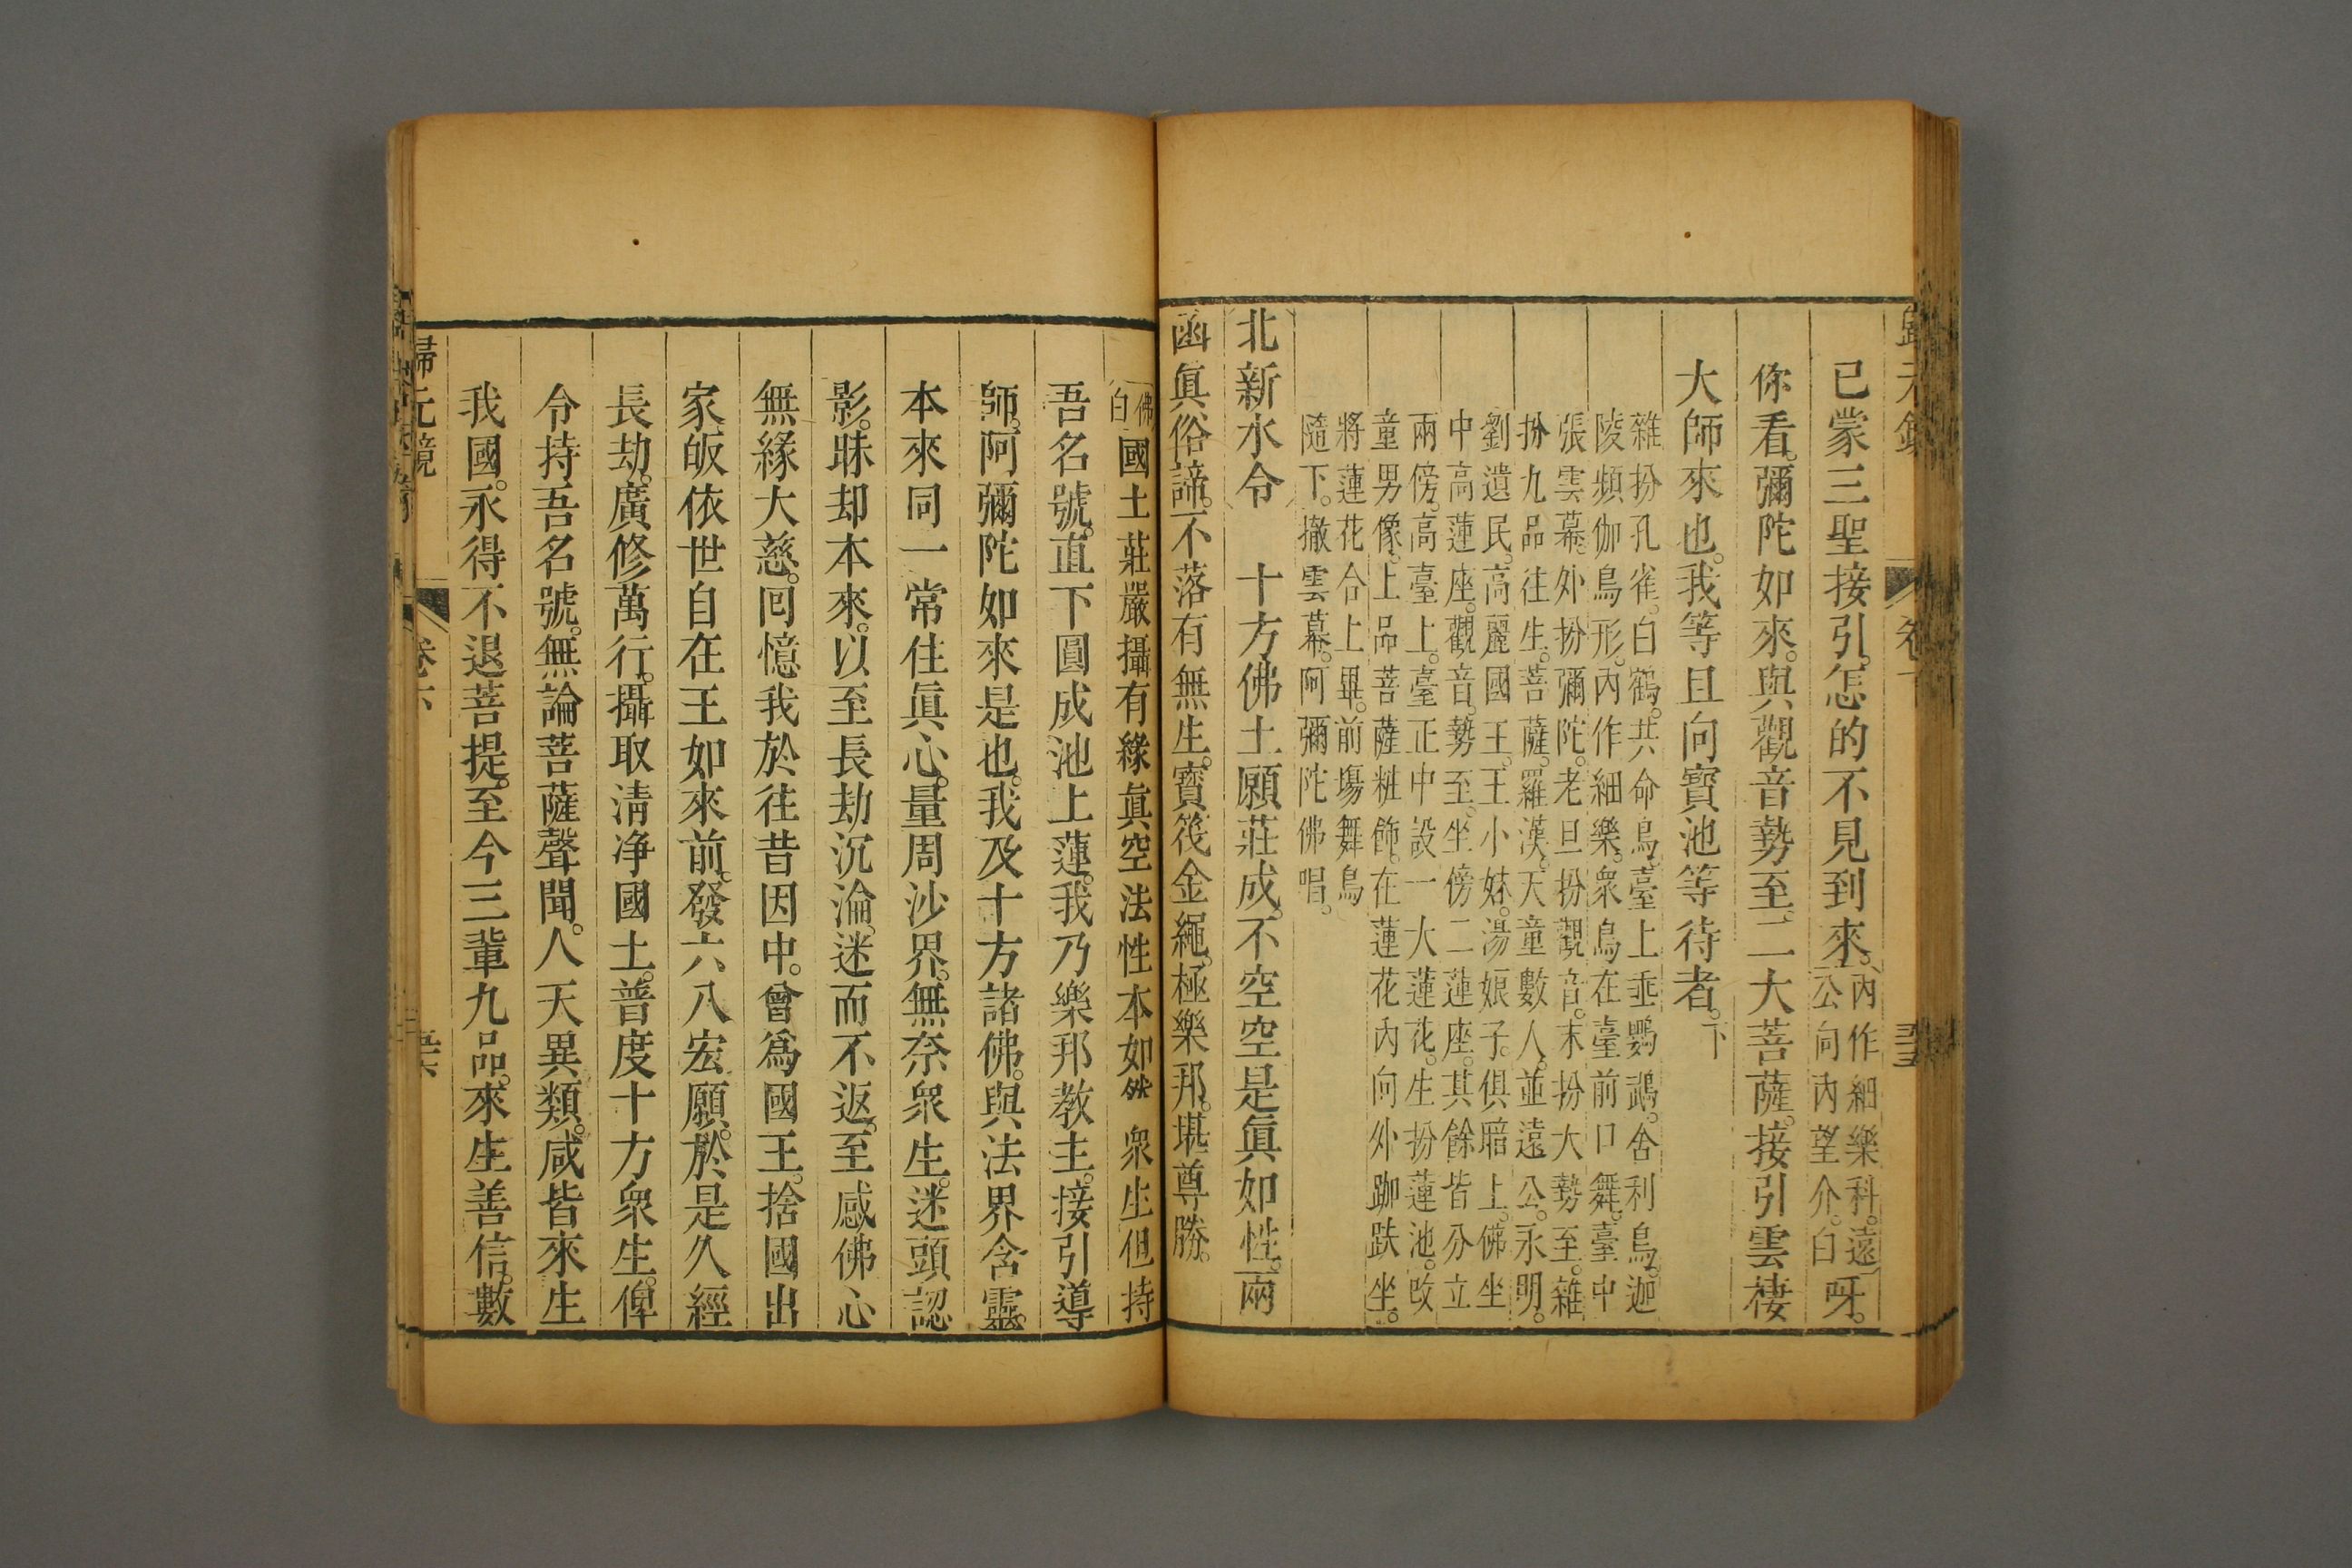 已蒙三聖接引。怎的不見到來。內作細樂科。遠公向內望介。白呀。
你看。彌陀如來。與觀音勢至。二大菩薩。接引雲棲
大師來也。我等且向寶池等待者。下
雜扮孔雀。白鶴。共命鳥。臺上乖鸚鵡。舍利鳥。迦
陵頻伽鳥形。內作細樂。衆鳥在臺前口舞。臺中
張雲幕。外扮彌陀。老旦扮觀音。末扮大勢至。雜
扮九品往生。菩薩。羅漢。天童數人。並遠公。永明。
劉遺民。高麗國王。王小妹。湯娘子。俱暗上。佛坐
中高蓮座。觀音。勢至。坐傍二蓮座。其餘皆分立
兩傍。高臺上。臺正中設一大蓮花。生扮蓮池。改
童男像。上品菩薩粧飾。在蓮花內向外跏趺坐。
將蓮花合上畢。前塲舞鳥
隨下。撤雲幕。阿彌陀佛唱。
北新水令 十方佛土願莊成。不空空是眞如性。兩
函眞俗諦。不落有無生。寶筏金繩。極樂邦。堪尊勝。
佛白 國土莊嚴攝有緣 眞空法性本如然 衆生但持
吾名號。直下圓成池上蓮。我乃樂邦教主。接引導
師。阿彌陀如來是也。我及十方諸佛。與法界含靈。
本來同一常住眞心。量周沙界。無奈衆生。迷頭認
影。昧却本來。以至長劫沉淪。迷而不返。至感佛心
無緣大慈。回憶我於往昔因中。曾爲國王。捨國出
家。皈依世自在王如來前。發六八宏願。於是久經
長劫。廣修萬行。攝取清净國土。普度十方衆生。俾
令持吾名號。無論菩薩聲聞。人天異類。咸皆來生
我國。永得不退菩提。至今三輩九品。來生善信。數
歸元鏡 卷下